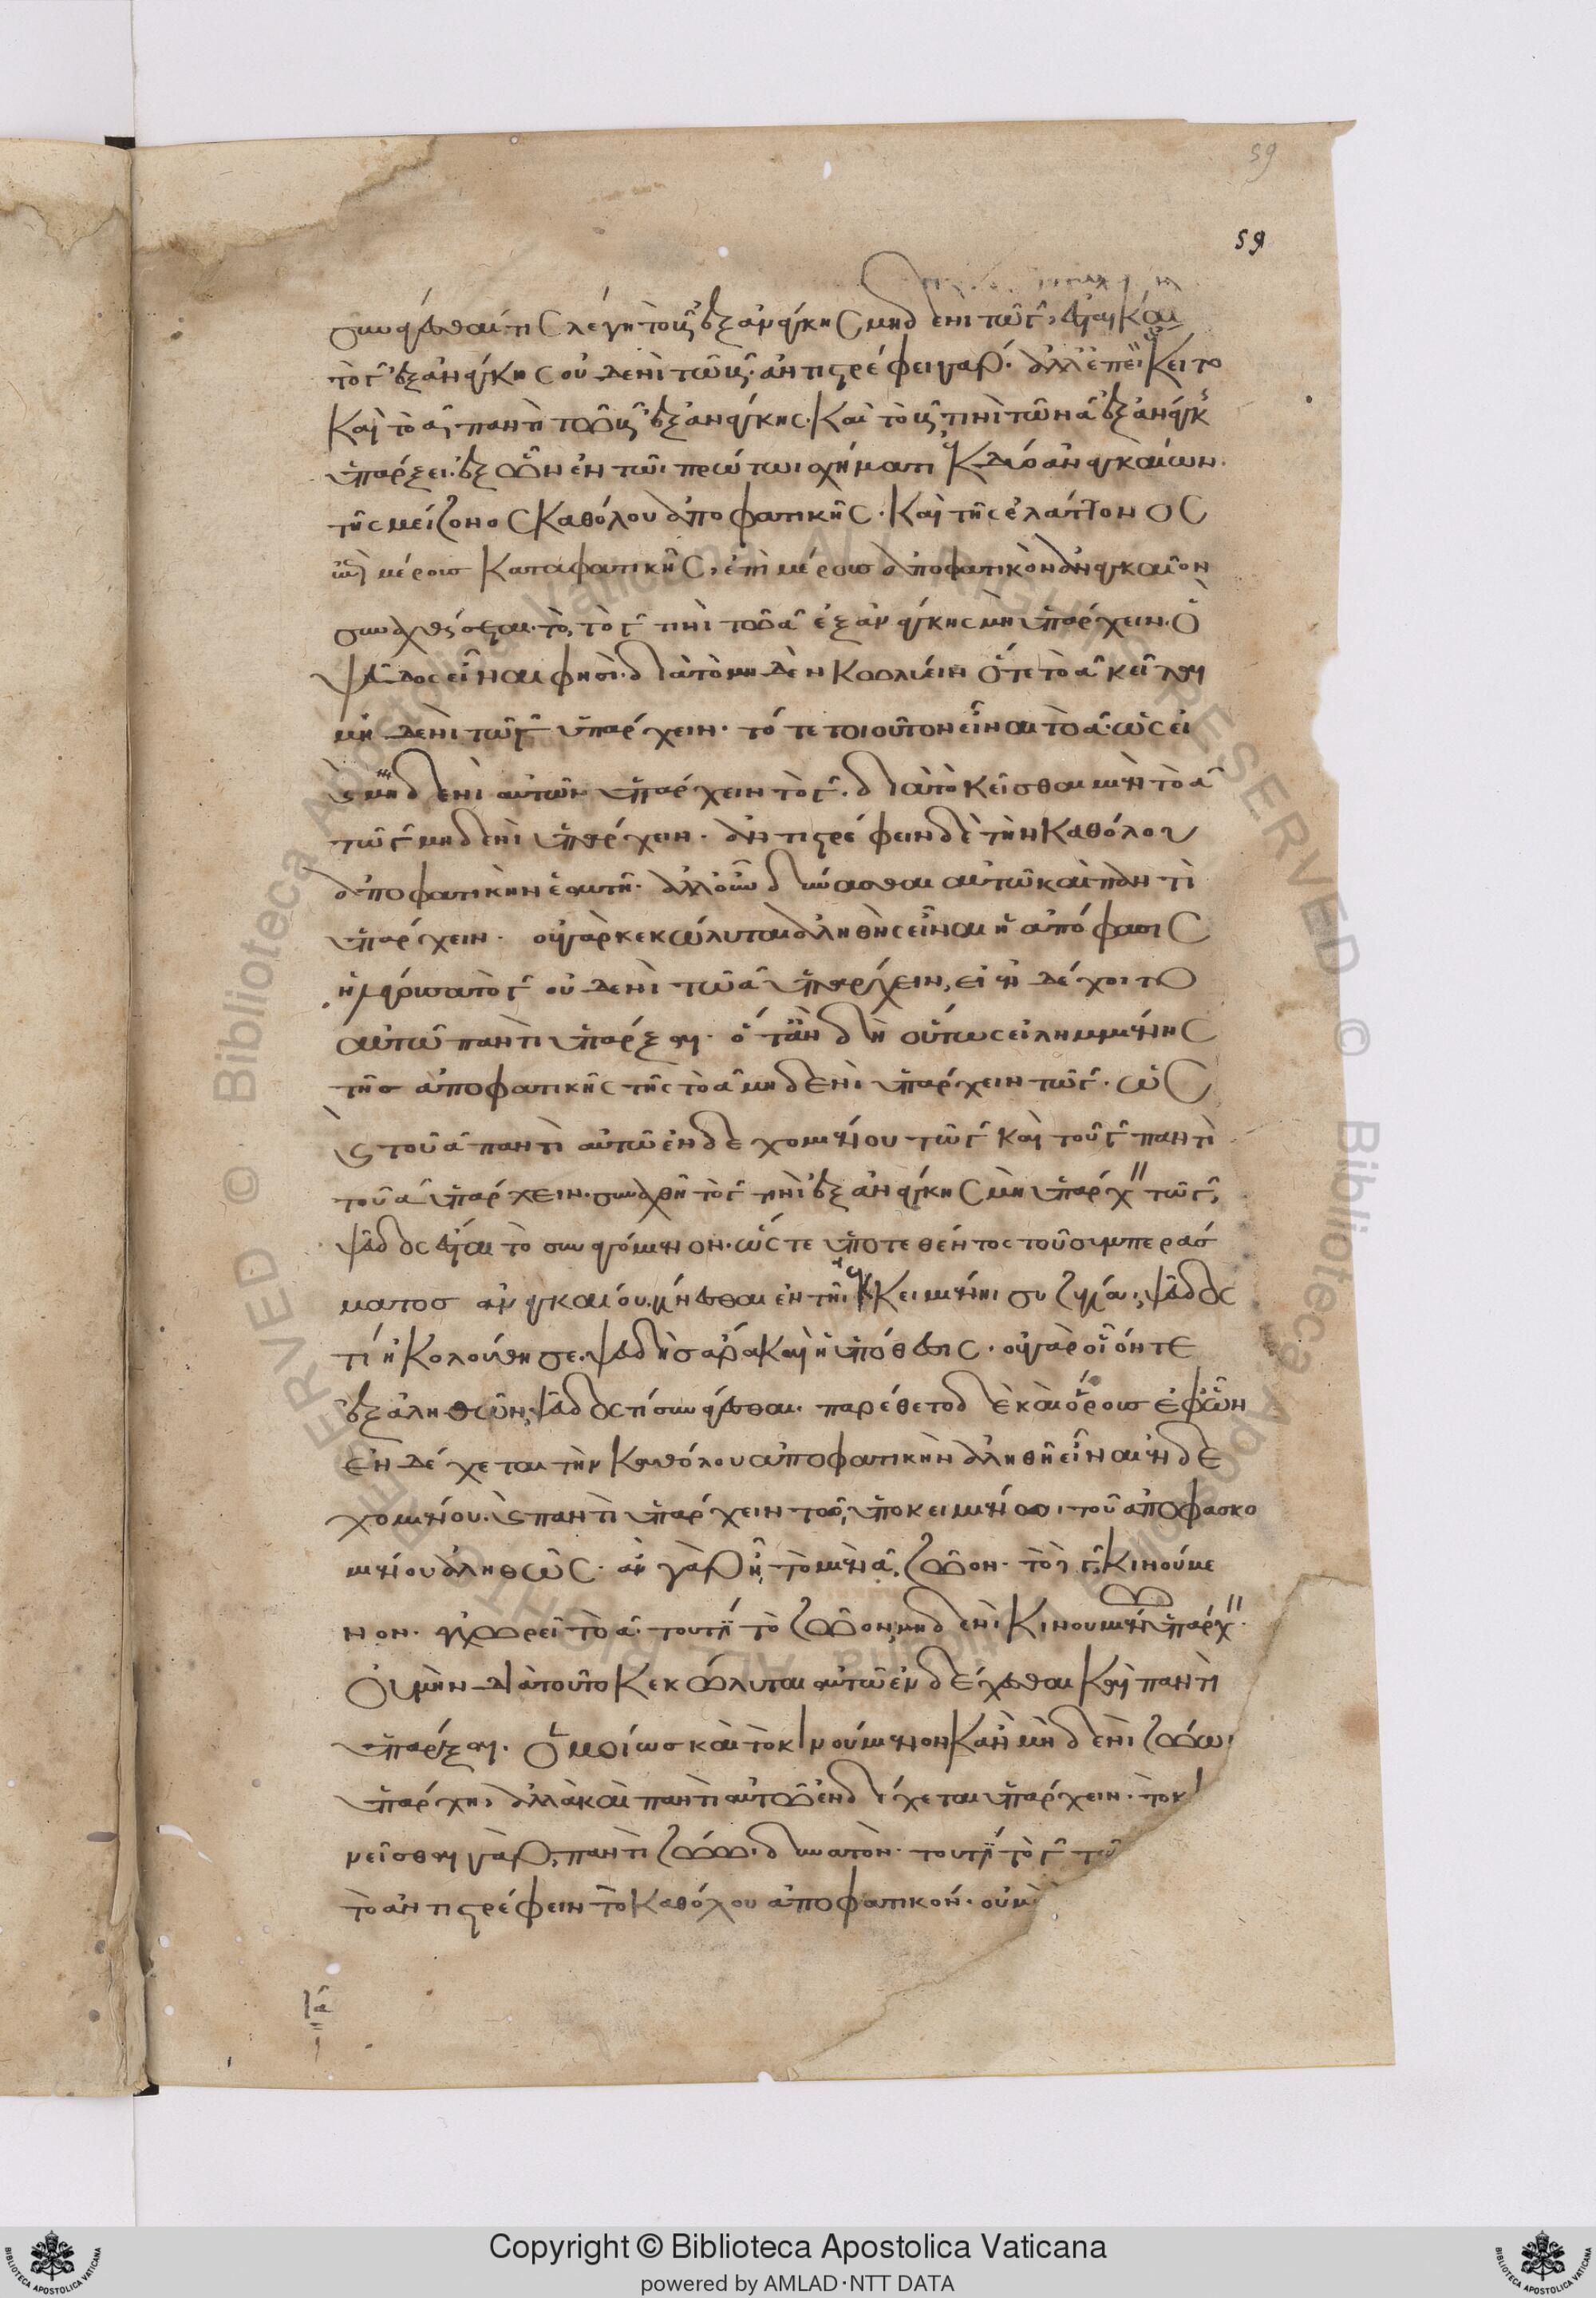 59
59
συνάγεσθαι, τις λέγη τὸ β ἐξ ἀνάγκης μηδενὶ τῶι γ, ἔσται καὶ
τὸ γ ἐξ ἀνάγκης οὐδενὶ τῶι β· ἀντιστρέφει γάρ. ἀλλ' ἐπεὶ κεῖτο
καὶ τὸ α παντὶ τῶι β ἐξ ἀνάγκης· καὶ τὸ β τινὶ τῶν α ἐξ ἀνάγκης
ὑπάρξει· ἐξ ὧν ἐν τῶι πρώτωι σχήματι δύο ἀναγκαίων·
τῆς μείζονος καθόλου ἀποφατικῆς· καὶ τῆς ἐλάττονος
ἐπὶ μέρους καταφατικῆς, ἐπὶ μέρους ἀποφατικὸν ἀναγκαῖον
συναχθήσεται· τὸ, τὸ γ τινὶ τῶι α ἐξ ἀνάγκης μὴ ὑπάρχειν· ὃ
ψεῦδος εἶναι φησὶ· διὰ τὸ μηδὲν κωλύειν ὅτε τὸ α κεῖται
μηδενὶ τῶι γ ὑπάρχειν· τότε τοιοῦτον εἶναι τὸ α· ὡς εἰ
καὶ μηδενὶ αὐτῶν ὑπάρχειν τὸ γ· διὰ τὸ κεῖσθαι μὲν τὸ α
τῶι γ μηδενὶ ὑπάρχειν· ἀντιστρέφειν δὲ τὴν καθόλου
ἀποφατικὴν ἑαυτῆ· ἀλλ' οὖν δύνασθαι αὐτῶι καὶ παντὶ
ὑπάρχειν· οὐ γὰρ κεκώλυται ἀληθὴς εἶναι ἡ ἀπόφασις
ἡ χωρίσασα τὸ γ οὐδενὶ τῶι α ὑπάρχειν, εἰ ἐνδέχοιτο
αὐτῶι παντὶ ὑπάρξαι· ὅταν δὴ οὕτως εἰλημμένης
τῆς ἀποφατικῆς τῆς τὸ α μηδενὶ ὑπάρχειν τῶι γ· ὡς
καὶ τοῦ α παντὶ αὐτῶι ἐνδεχομένου τῶι γ καὶ τοῦ γ παντὶ
τοῦ α ὑπάρχειν· συναχθῆ τὸ γ τινὶ ἐξ ἀνάγκης μὴ ὑπάρχειν τῶι γ,
ψεῦδος ἔσται τὸ συναγόμενον· ὥστε ὑποτεθέντος τοῦ συμπεράσ
ματος ἀναγκαίου γίνεσθαι ἐν τῆι κειμένηι συζυγίαι, ψεῦδός
τι ἠκολούθησε· ψευδὴς ἄρα καὶ ἡ ὑπόθεσις· οὐ γὰρ οἷόν τε
ἐξ ἀληθῶν, ψεῦδός τι συνάγεσθαι· παρέθετο δὲ καὶ ὅρους ἐφ' ὧν
ἐνδέχεται τὴν καθόλου ἀποφατικὴν ἀληθῆ εἶναι ἐνδε
χομένου· καὶ παντὶ ὑπάρχειν τῶι, ὑποκειμένωι τοῦ ἀποφασκο
μένου ἀληθῶς· ἂν γὰρ ἦι, τὸ μὲν α, ζῶον· τὸ δὲ γ, κινούμε
νον· χωρεῖ τὸ α· τουτέστι τὸ ζῶον, μηδενὶ κινουμένωι ὑπάρχειν·
οὐ μὴν διὰ τοῦτο κεκώλυται αὐτῶι ἐνδέχεσθαι καὶ παντὶ
ὑπάρξαι· ὁμοίως καὶ τὸ κινούμενον κἂν μηδενὶ ζώωι
ὑπάρχηι, ἀλλὰ καὶ παντὶ αὐτῶι ἐνδέχεται ὑπάρχειν· τὸ κι
νεῖσθαι γὰρ, παντὶ ζώωι δυνατόν· τουτέστι τὸ γ τῶι
τὸ ἀντιστρέφειν τὸ καθόλου ἀποφατικόν· οὐ μὴ
ια
Copyright © Biblioteca Apostolica Vaticana
powered by AMLAD·NTT DATA